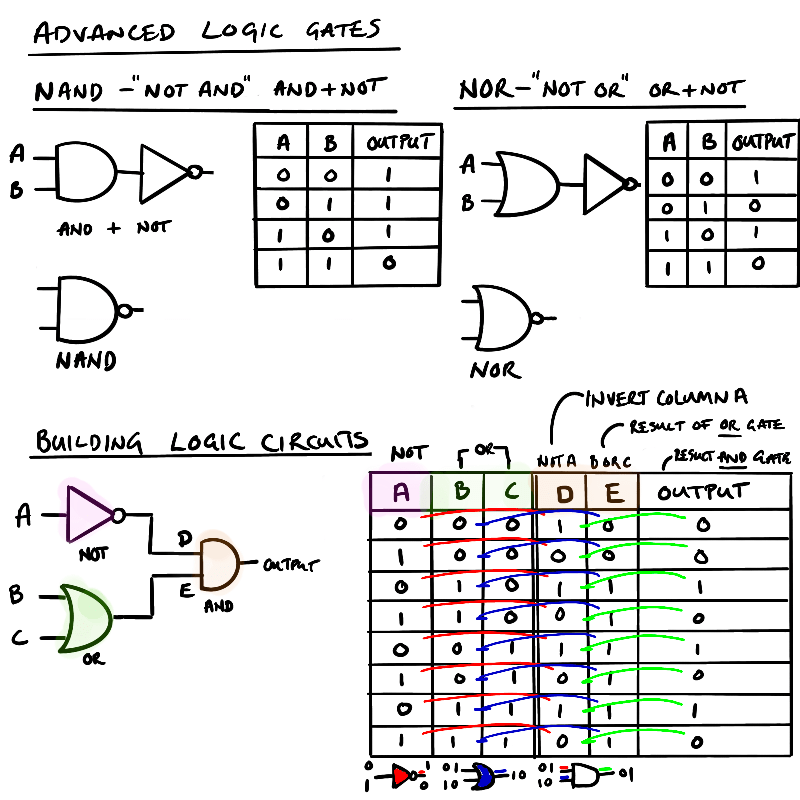 ADVANCED LOGIC GATES
NAND - "NOT AND" AND + NOT
A
B
AND + NOT
NAND
A B OUTPUT
0 0 1
0 1 1
1 0 1
1 1 0
NOR - "NOT OR" OR + NOT
A
B
NOR
A B OUTPUT
0 0 1
0 1 0
1 0 1
1 1 0
BUILDING LOGIC CIRCUITS
A
NOT
B
C
OR
D
E
AND
OUTPUT
INVERT COLUMN A
RESULT OF OR GATE
RESULT AND GATE
NOT OR NOT A B OR C
A B C D E OUTPUT
0 0 0 1 0 0
1 0 0 0 0 0
0 1 0 1 1 1
1 1 0 0 1 0
0 0 1 1 1 1
1 0 1 0 1 0
0 1 1 1 1 1
1 1 1 0 1 0
0 1 01 01
1 0 10 10 10 01